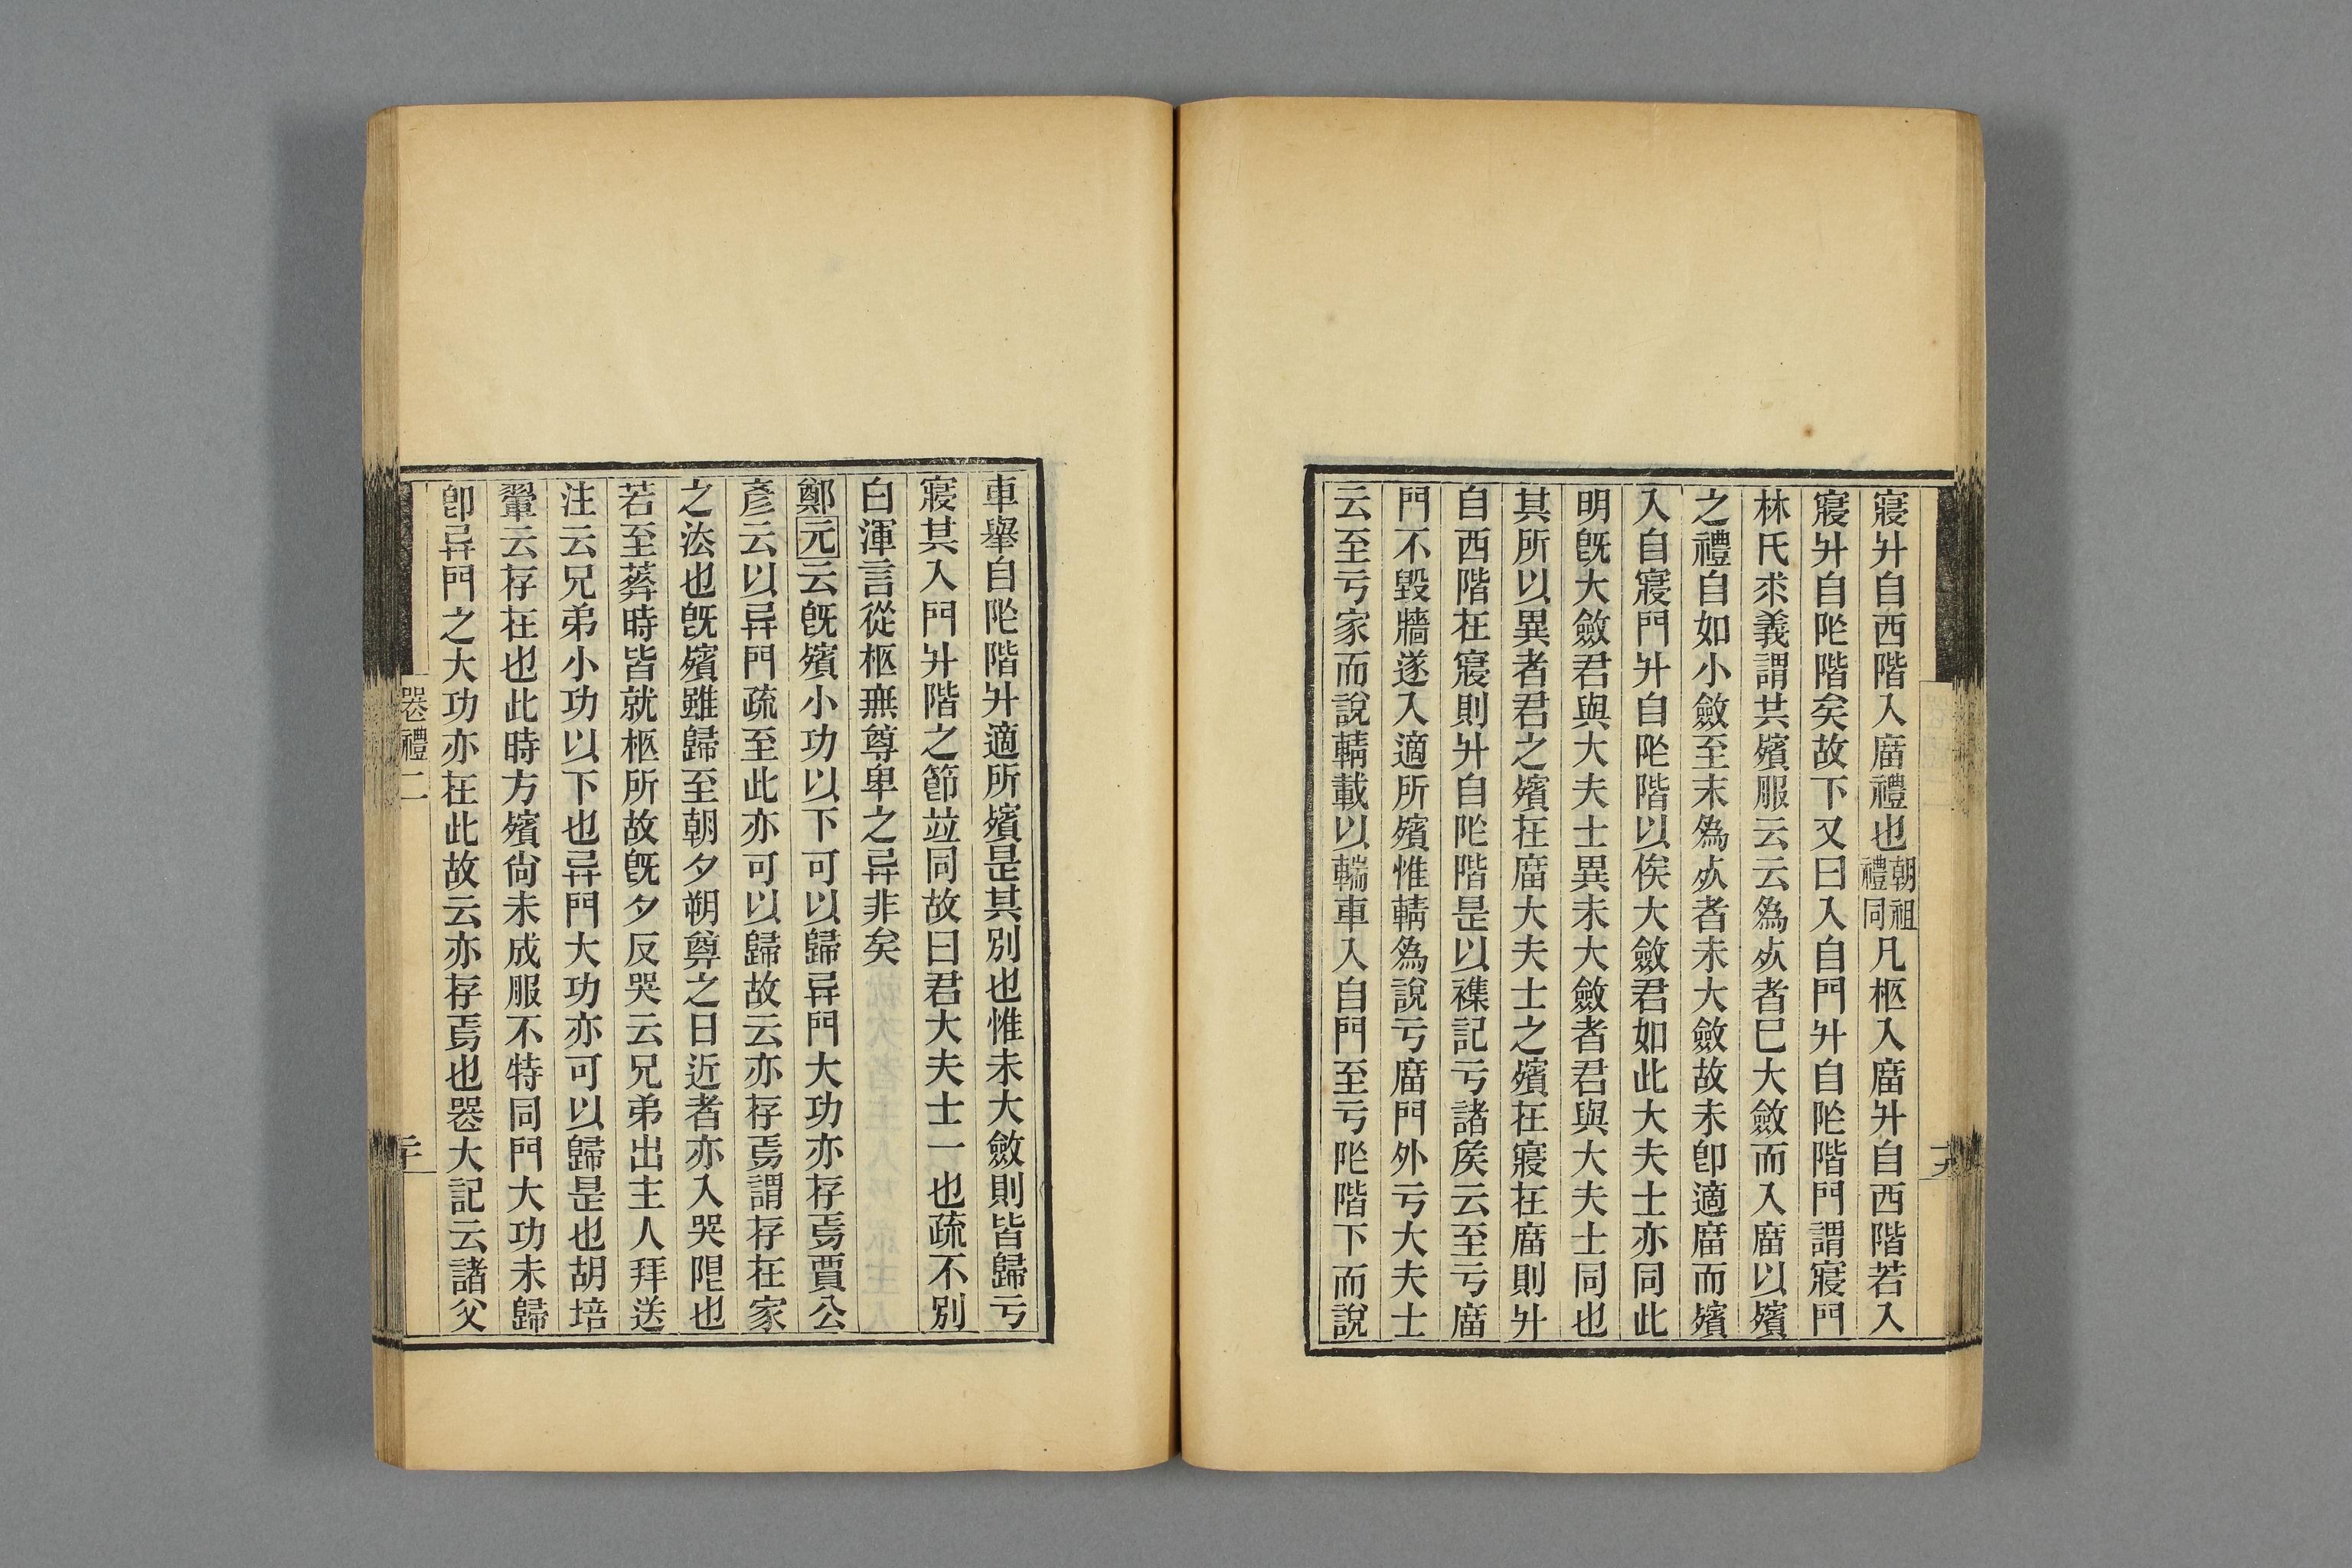 寢升自西階入庿禮也朝祖禮同凡柩入庿升自西階若入
寢升自阼階矣故下又曰入自門升自阼階門謂寢門
林氏求義謂共殯服云云爲死者巳大斂而入庿以殯
之禮自如小斂至末爲死者未大斂故未卽適庿而殯
入自寢門升自阼階以俟大斂君如此大夫士亦同此
明旣大斂君與大夫士異未大斂者君與大夫士同也
其所以異者君之殯在庿大夫士之殯在寢在庿則升
自西階在寢則升自阼階是以襍記亏諸矦云至亏庿
門不毀牆遂入適所殯惟輤爲說亏庿門外亏大夫士
云至亏家而說輤載以輲車入自門至亏阼階下而說
十九
車舉自阼階升適所殯是其別也惟未大斂則皆歸亏
寢其入門升階之節竝同故曰君大夫士一也疏不別
白渾言從柩無尊卑之异非矣
鄭元云旣殯小功以下可以歸异門大功亦存焉賈公
彥云以异門疏至此亦可以歸故云亦存焉謂存在家
之法也旣殯雖歸至朝夕朔尊之日近者亦入哭限也
若至葬時皆就柩所故旣夕反哭云兄弟出主人拜送
注云兄弟小功以下也异門大功亦可以歸是也胡培
翬云存在也此時方殯尙未成服不特同門大功未歸
卽异門之大功亦在此故云亦存焉也喪大記云諸父
喪禮二
二十